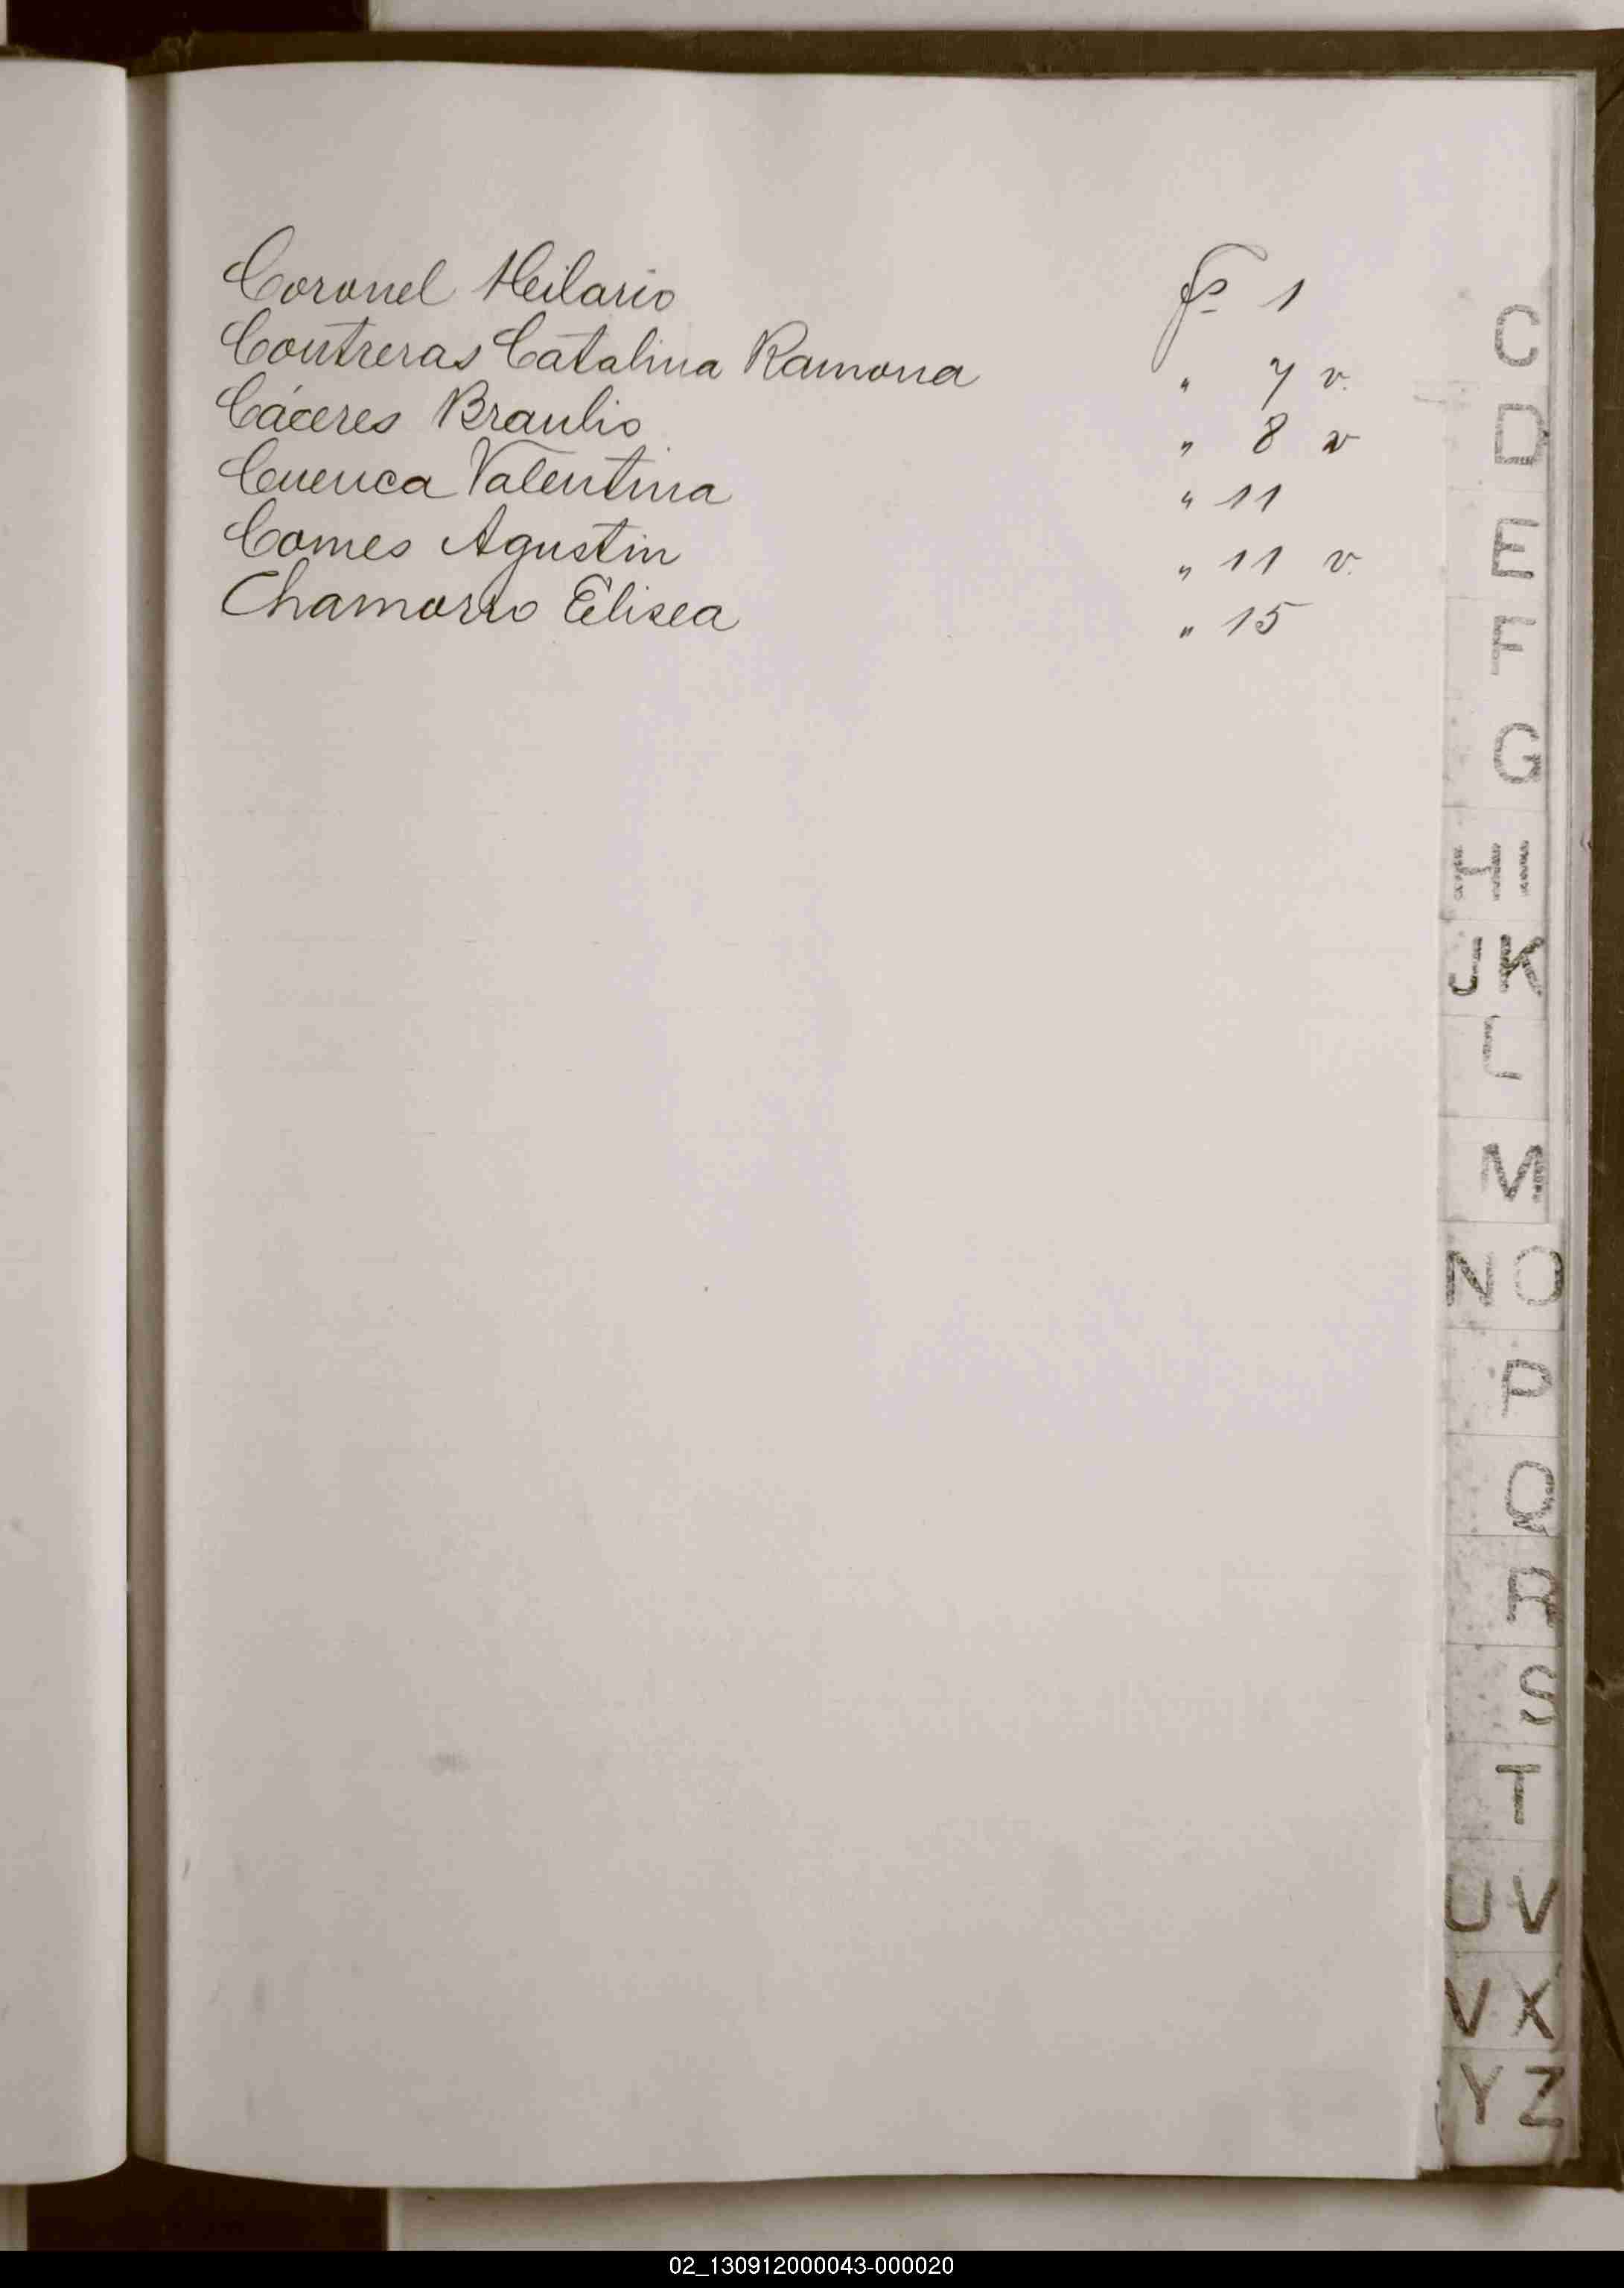 Coronel Heilario fs 1
Contreras Catalina Ramona " 7 v.
Cáceres Braulio " 8 v
Cuenca Valentina " 11
Comes Agustin " 11 v.
Chamorro Elisea " 15
C
D
E
F
G
HI
JK
L
M
NO
P
Q
R
S
T
UV
VX
YZ
02_130912000043-000020